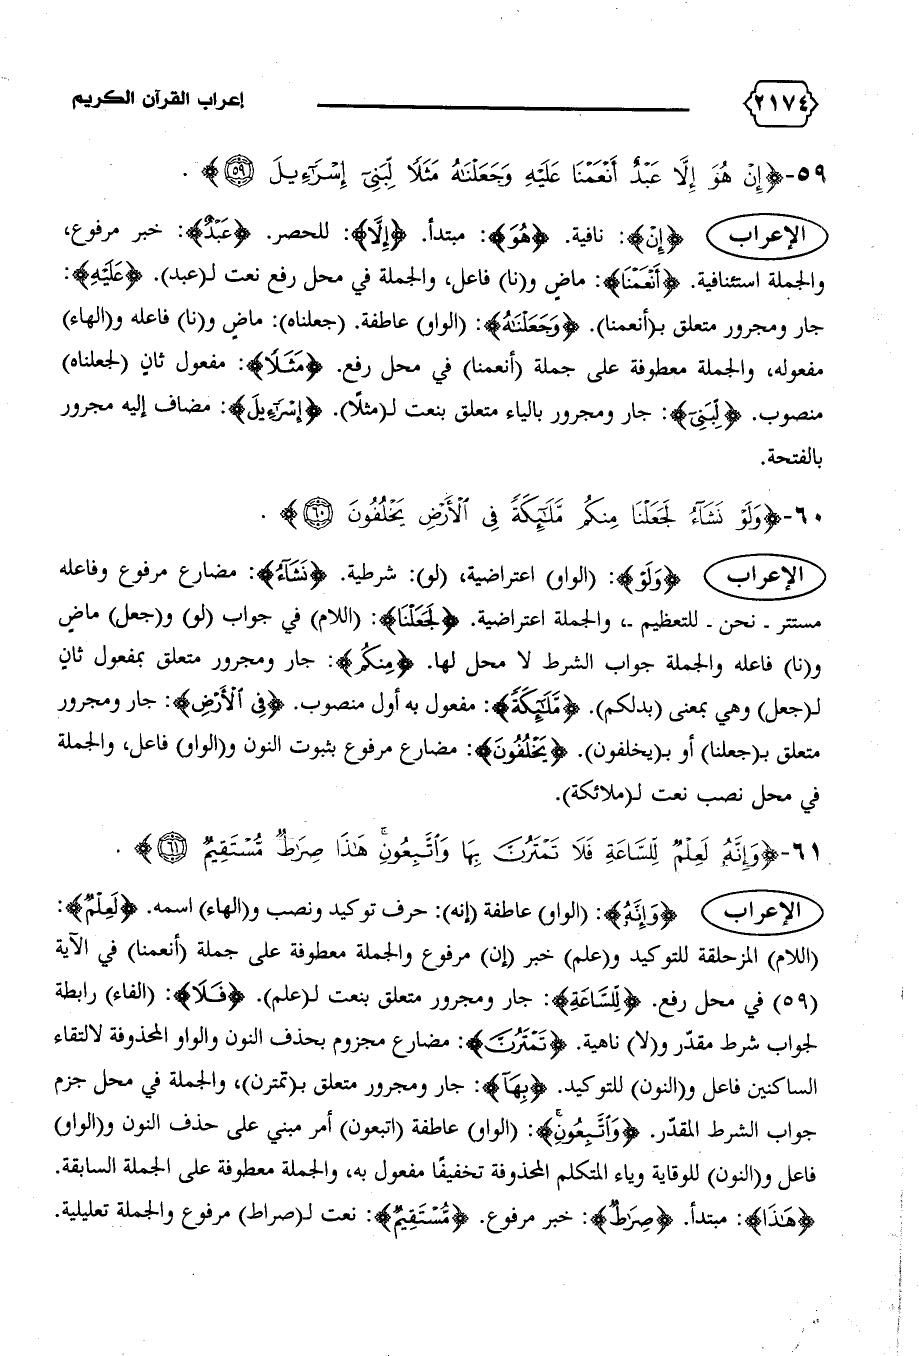 ٢١٧٤ إعراب القرآن الكريم
٥٩- ﴿إِنْ هُوَ إِلَّا عَبْدٌ أَنْعَمْنَا عَلَيْهِ وَجَعَلْنَٰهُ مَثَلًا لِّبَنِىٓ إِسْرَٰٓءِيلَ ۝٥٩﴾ .
الإعراب ﴿إِنْ﴾: نافية. ﴿هُوَ﴾: مبتدأ. ﴿إِلَّا﴾: للحصر. ﴿عَبْدٌ﴾: خبر مرفوع،
والجملة استئنافية. ﴿أَنْعَمْنَا﴾: ماضٍ و(نا) فاعل، والجملة في محل رفع نعت لـ(عبد). ﴿عَلَيْهِ﴾:
جار ومجرور متعلق بـ(أنعمنا). ﴿وَجَعَلْنَٰهُ﴾: (الواو) عاطفة. (جعلناه): ماضٍ و(نا) فاعله و(الهاء)
مفعوله، والجملة معطوفة على جملة (أنعمنا) في محل رفع. ﴿مَثَلًا﴾: مفعول ثانٍ (لجعلناه)
منصوب. ﴿لِّبَنِىٓ﴾: جار ومجرور بالياء متعلق بنعت لـ(مثلًا). ﴿إِسْرَٰٓءِيلَ﴾: مضاف إليه مجرور
بالفتحة.
٦٠- ﴿وَلَوْ نَشَآءُ لَجَعَلْنَا مِنكُم مَّلَٰٓئِكَةً فِى ٱلْأَرْضِ يَخْلُفُونَ ۝٦٠﴾ .
الإعراب ﴿وَلَوْ﴾: (الواو) اعتراضية، (لو): شرطية. ﴿نَشَآءُ﴾: مضارع مرفوع وفاعله
مستتر ـ نحن ـ للتعظيم ـ، والجملة اعتراضية. ﴿لَجَعَلْنَا﴾: (اللام) في جواب (لو) و(جعل) ماضٍ
و(نا) فاعله والجملة جواب الشرط لا محل لها. ﴿مِنكُم﴾: جار ومجرور متعلق بمفعول ثانٍ
لـ(جعل) وهي بمعنى (بدلكم). ﴿مَّلَٰٓئِكَةً﴾: مفعول به أول منصوب. ﴿فِى ٱلْأَرْضِ﴾: جار ومجرور
متعلق بـ(جعلنا) أو بـ(يخلفون). ﴿يَخْلُفُونَ﴾: مضارع مرفوع بثبوت النون و(الواو) فاعل، والجملة
في محل نصب نعت لـ(ملائكة).
٦١- ﴿وَإِنَّهُۥ لَعِلْمٌ لِّلسَّاعَةِ فَلَا تَمْتَرُنَّ بِهَا وَٱتَّبِعُونِ ۚ هَٰذَا صِرَٰطٌ مُّسْتَقِيمٌ ۝٦١﴾ .
الإعراب ﴿وَإِنَّهُۥ﴾: (الواو) عاطفة (إنه): حرف توكيد ونصب و(الهاء) اسمه. ﴿لَعِلْمٌ﴾:
(اللام) المزحلقة للتوكيد و(علم) خبر (إن) مرفوع والجملة معطوفة على جملة (أنعمنا) في الآية
(٥٩) في محل رفع. ﴿لِّلسَّاعَةِ﴾: جار ومجرور متعلق بنعت لـ(علم). ﴿فَلَا﴾: (الفاء) رابطة
لجواب شرط مقدّر و(لا) ناهية. ﴿تَمْتَرُنَّ﴾: مضارع مجزوم بحذف النون والواو المحذوفة لالتقاء
الساكنين فاعل و(النون) للتوكيد. ﴿بِهَا﴾: جار ومجرور متعلق بـ(تمترن)، والجملة في محل جزم
جواب الشرط المقدّر. ﴿وَٱتَّبِعُونِ ۚ﴾: (الواو) عاطفة (اتبعون) أمر مبني على حذف النون و(الواو)
فاعل و(النون) للوقاية وياء المتكلم المحذوفة تخفيفًا مفعول به، والجملة معطوفة على الجملة السابقة.
﴿هَٰذَا﴾: مبتدأ. ﴿صِرَٰطٌ﴾: خبر مرفوع. ﴿مُّسْتَقِيمٌ﴾: نعت لـ(صراط) مرفوع والجملة تعليلية.